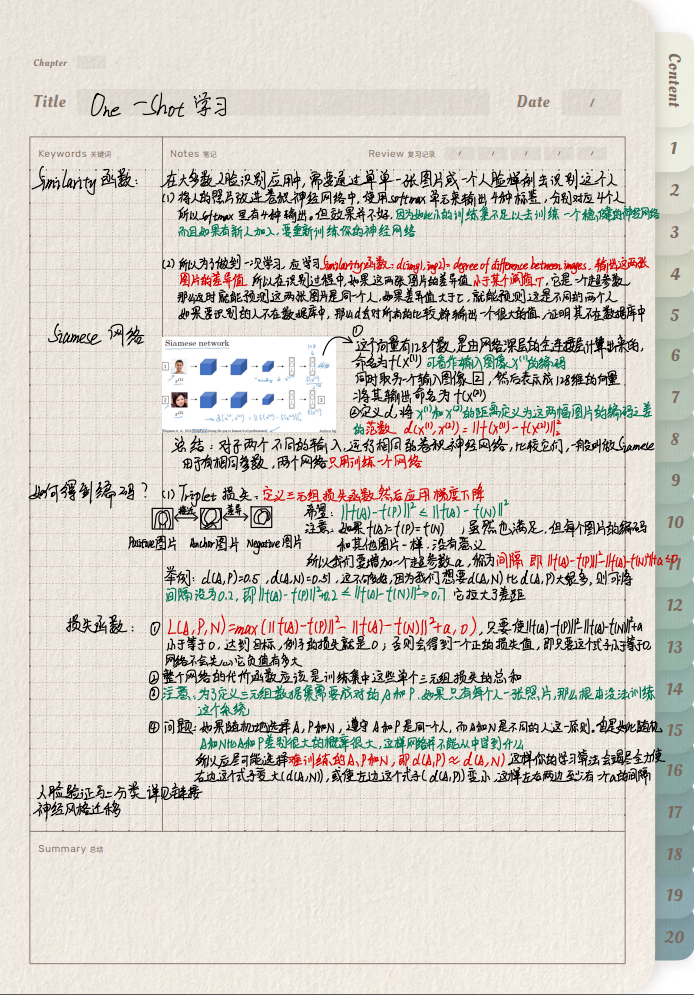 Chapter
Title One-Shot 学习 Date /
Content
Keywords 关键词 Notes 笔记 Review 复习记录 / / / / /
Similarity 函数: 在大多数人脸识别应用中,需要通过单单一张图片或一个人脸样例去识别这个人
(1) 将人的照片放进卷积神经网络中,使用softmax单元来输出4种标签,分别对应4个人
所以softmax里有4种输出。但效果并不好,因为如此小的训练集不足以去训练一个稳健的神经网络
而且如果有新人加入,要重新训练你的神经网络
(2) 所以为了做到一次学习,应学习Similarity函数:d(img1,img2)=degree of difference between images,输出这两张
图片的差异值,所以在识别过程中,如果这两张图片的差异值小于某个阈值τ,它是一个超参数
那么这时就能预测这两张图片是同一个人,如果差异值大于τ,就能预测这是不同的两个人
如果要识别的人不在数据库中,那么d会对所有的比较都输出一个很大的值,证明其不在数据库中
Siamese 网络
Siamese network
①
这个向量有128个数,是由网络深层的全连接层计算出来的,
命名为f(x⁽¹⁾) 可看作输入图像x⁽¹⁾的编码
同时取另一个输入图像[2],然后表示成128维的向量
将其输出命名为f(x⁽²⁾)
②定义d,将x⁽¹⁾和x⁽²⁾的距离定义为这两幅图片的编码之差
的范数 d(x⁽¹⁾,x⁽²⁾)=||f(x⁽¹⁾)-f(x⁽²⁾)||²₂
总结:对于两个不同的输入,运行相同的卷积神经网络,比较它们,一般叫做Siamese
由于有相同参数,两个网络只用训练一个网络
如何得到编码? (1) Triplet 损失:定义三元组损失函数然后应用梯度下降
接近 差异
Positive图片 Anchor图片 Negative图片
希望:||f(A)-f(P)||² ≤ ||f(A)-f(N)||²
注意:如果f(A)=f(P)=f(N),虽然也满足,但每个图片的编码
和其他图片一样,没有意义
所以我们要增加一个超参数a,称为间隔 即 ||f(A)-f(P)||²-||f(A)-f(N)||²+a≤0
举例:d(A,P)=0.5,d(A,N)=0.51,这不够好,因为我们想要d(A,N)比d(A,P)大很多,则可将
间隔设为0.2,即||f(A)-f(P)||²+0.2 ≤ ||f(A)-f(N)||²→0.7 它拉大了差距
损失函数: ① L(A,P,N)=max(||f(A)-f(P)||²-||f(A)-f(N)||²+a,0),只要使||f(A)-f(P)||²-||f(A)-f(N)||²+a
小于等于0,达到目标,例子的损失就是0;否则会得到一个正的损失值,即只要这个式子小于等于0,
网络不会关心它负值有多大
②整个网络的代价函数应该是训练集中这些单个三元组损失的总和
③注意:为了定义三元组数据集需要成对的A和P,如果只有每个人一张照片,那么根本没法训练
这个系统
④问题:如果随机地选择A,P和N,遵守A和P是同一个人,而A和N是不同的人这一原则,但是如此随机
A和N比A和P差别很大的概率很大,这样网络并不能从中学到什么
所以应尽可能选择难训练的A、P和N,即d(A,P)≈d(A,N),这样你的学习算法会竭尽全力使
右边这个式子变大(d(A,N)),或使左边这个式子(d(A,P))变小,这样左右两边至少有一个a的间隔
人脸验证与二分类 详见链接
神经风格迁移
Summary 总结
1
2
3
4
5
6
7
8
9
10
11
12
13
14
15
16
17
18
19
20